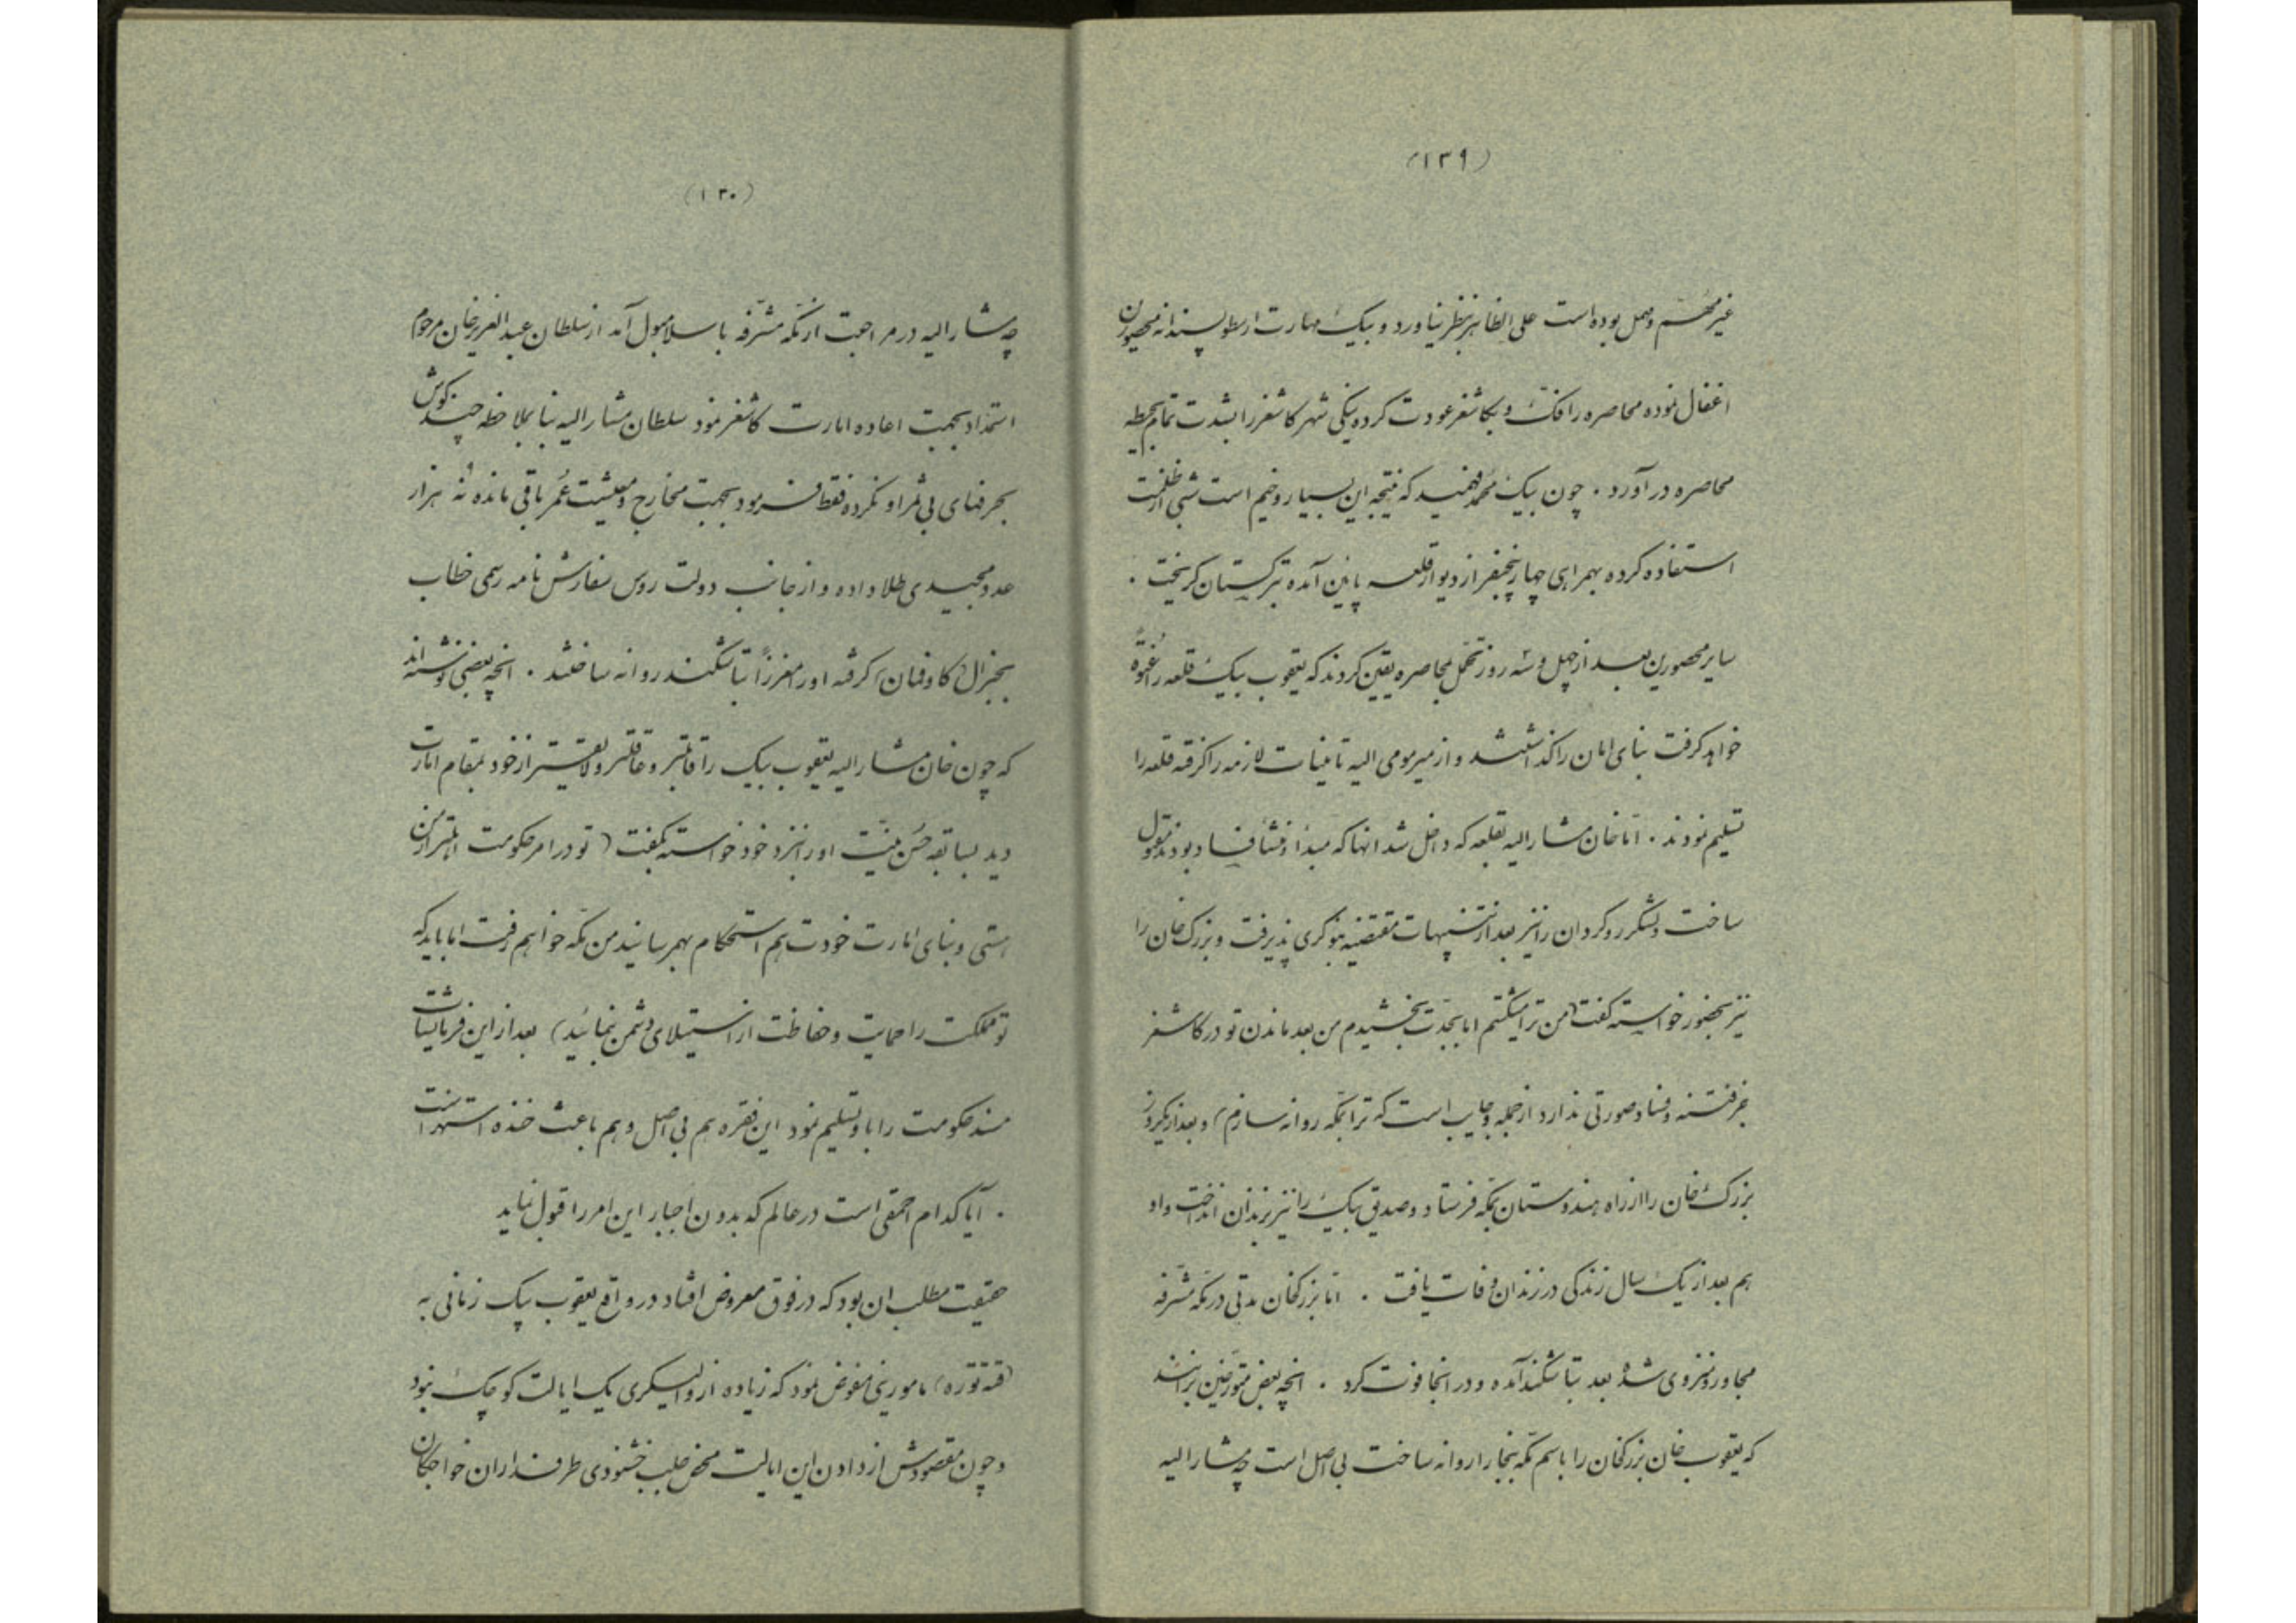 (١٣٩)
غیر مهم و مهمل بوده است علی الظاهر بنظر نیاورد و بیک مهارت ارسطو پسندانه محصورین
اغفال نموده محاصره را فک و بکاشغر عودت کرده ینکی شهر کاشغر را بشدت تمام بحیطه
محاصره در آورد . چون بیک محمد فهمید که نتیجه این بسیار وخیم است شبی از ظلمت
استفاده کرده بهمراهی چهار پنجنفر از دیوار قلعه پایین آمده بترکستان کریخت .
سایر محصورین بعد از چهل و سه روز تحمل بمحاصره یقین کردند که یعقوب بیک قلعه را عنوةً
خواهد کرفت بنای امان را کذاشتند و از میر مومی الیه تامینات لازمه را کرفته قلعه را
تسلیم نمودند . اما خان مشار الیه بقلعه که داخل شد انها که مبدأ و منشأ فساد بودند مقتول
ساخت و لشکر رو کردان را نیز بعد از تنبیهات مقتضیه بنوکری پذیرفت و بزرک خان را
نیز بحضور خواسته کفت (من ترا میکشتم اما بجدت بخشیدم من بعد ماندن تو در کاشغر
بجز فتنه و فساد صورتی ندارد از جمله وجایب است که ترا بمکه روانه سازم) و بعد از یکروز
بزرک خان را از راه هندوستان بمکه فرستاد و صدیق بیک را نیز بزندان انداخت و او
هم بعد از یک سال زندکی در زندان وفات یافت . اما بزرکخان مدتی در مکه مشرفه
مجاور و منزوی شده بعد بتاشکند آمده و در انجا فوت کرد . انچه بعض متورخین برانند
که یعقوب خان بزرکخان را باسم مکه ببخارا روانه ساخت بی اصل است چه مشار الیه
(١٣٠)
چه مشار الیه در مراجعت از مکه مشرفه باسلامبول آمد از سلطان عبد العزیز خان مرحوم
استمداد بجهت اعاده امارت کاشغر نمود سلطان مشار الیه بنا بملاحظه چند کوش
بحرفهای بی ثمر او نکرده فقط فرمود بجهت مخارج و معیشت عمر باقی مانده نه هزار
عدد مجیدی طلا داده و از جانب دولت روس سفارش نامه رسمی خطاب
بجنرال (کاوفمان) کرفته او را معززاً بتاشکند روانه ساختند . انچه بعضی نوشته اند
که چون خان مشار الیه یعقوب بیک را قابلتر و عاقلتر و لایقتر از خود بمقام امارت
دید بسابقه حسن نیت او را نزد خود خواسته بکفت (تو در امر حکومت اهلتر از من
هستی و بنای امارت خودت هم استحکام بهمرسانید من بمکه خواهم رفت اما باید که
تو مملکت را حمایت و حفاظت از استیلای دشمن بنمائید) بعد از این فرمایشات
مسند حکومت را باو تسلیم نمود این فقره هم بی اصل و هم باعث خنده و استهزا است
. آیا کدام احمقی است در عالم که بدون اجبار این امر را قبول نماید
حقیقت مطلب ان بود که در فوق معروض افتاد در واقع یعقوب بیک زمانی به
(قته توره) ماموریتی مفوض نمود که زیاده از والیسکری یک ایالت کوچک نبود
و چون مقصودش از دادن این ایالت محض جلب خشنودی طرفداران خواجکان